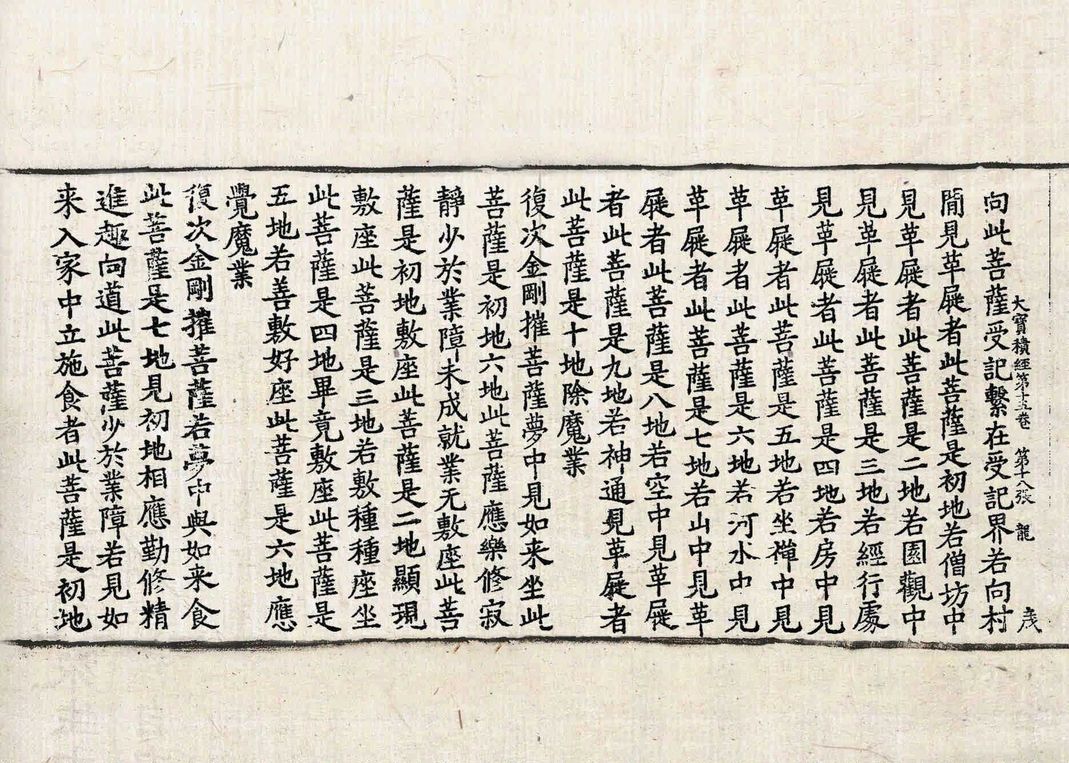 大寶積經第十五卷 第十八張 龍 戌
向此菩薩受記繫在受記界若向村
閒見革屣者此菩薩是初地若僧坊中
見革屣者此菩薩是二地若園觀中
見革屣者此菩薩是三地若經行處
見革屣者此菩薩是四地若房中見
革屣者此菩薩是五地若坐禪中見
革屣者此菩薩是六地若河水中見
革屣者此菩薩是七地若山中見革
屣者此菩薩是八地若空中見革屣
者此菩薩是九地若神通見革屣者
此菩薩是十地除魔業
復次金剛摧菩薩夢中見如来坐此
菩薩是初地六地此菩薩應樂修寂
靜少於業障未成就業无敷座此菩
薩是初地敷座此菩薩是二地顯現
敷座此菩薩是三地若敷種種座坐
此菩薩是四地畢竟敷座此菩薩是
五地若善敷好座此菩薩是六地應
覺魔業
復次金剛摧菩薩若夢中與如来食
此菩薩是七地見初地相應勤修精
進趣向道此菩薩少於業障若見如
来入家中立施食者此菩薩是初地